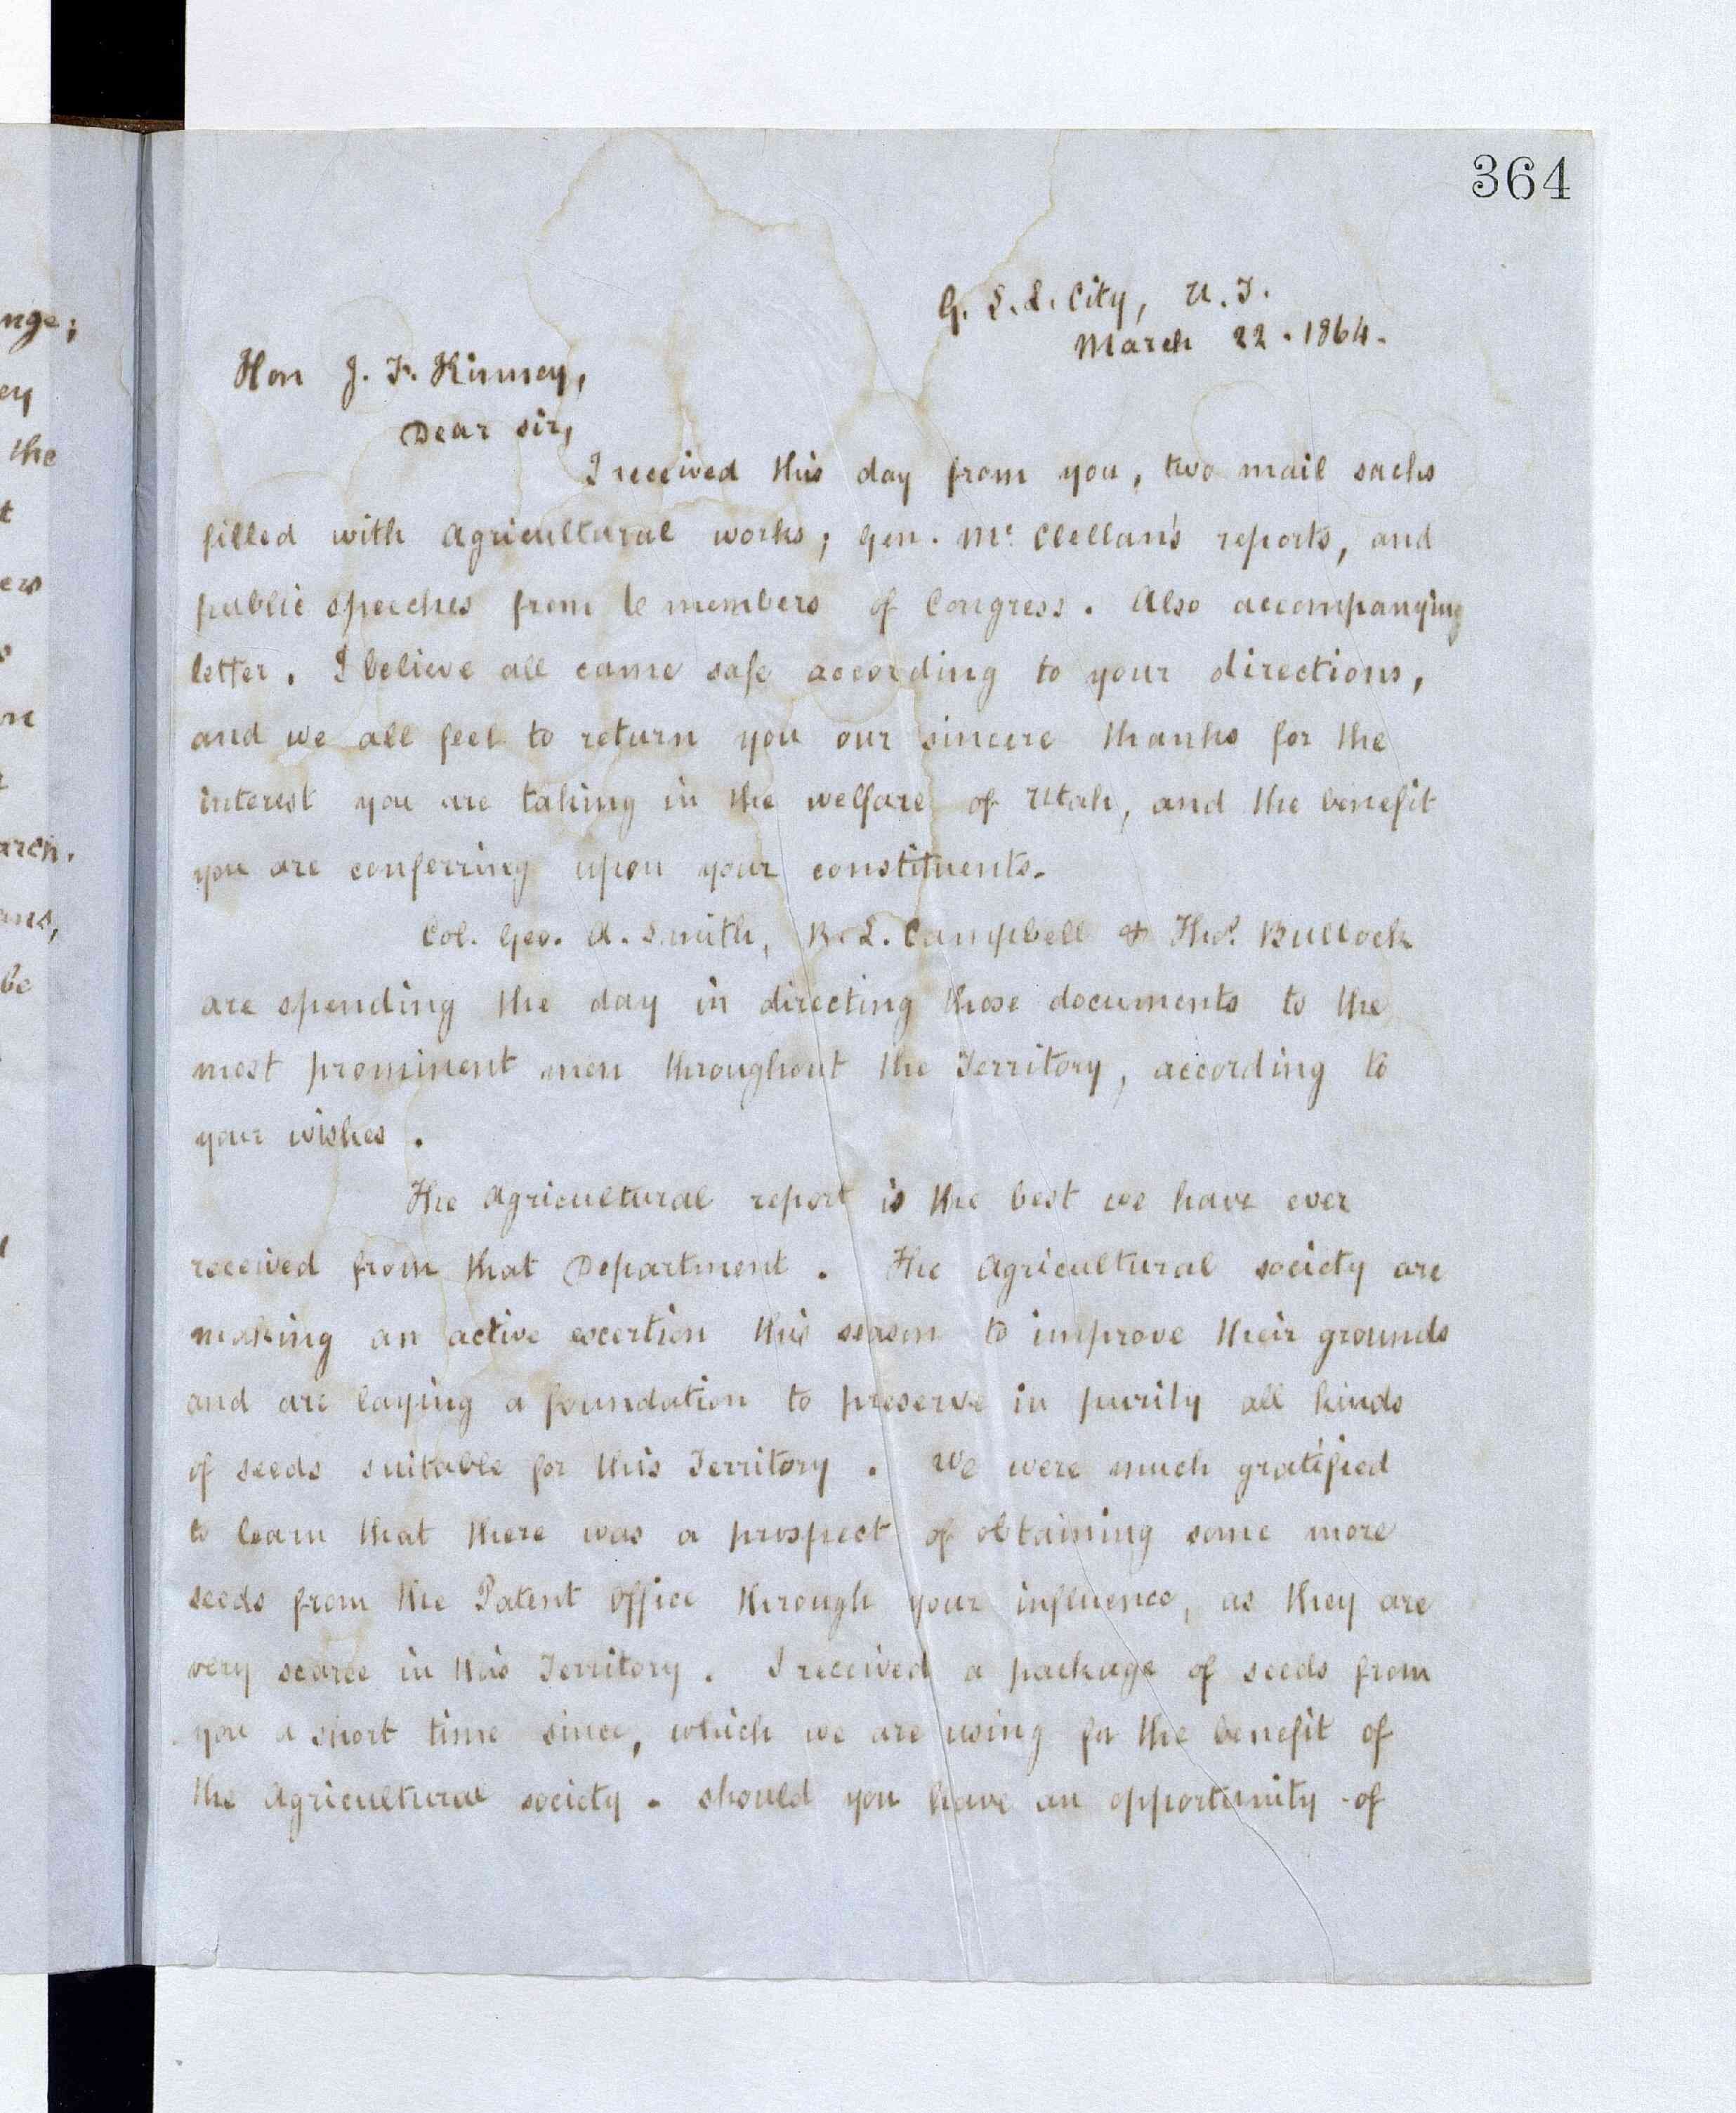 364
G. S. L. City, U. T.
March 22. 1864.
Hon J. F. Kinney,
Dear Sir,
I received this day from you, two mail sacks
filled with Agricultural works; Gen. Mc Clellan's reports, and
public speeches from members of Congress. Also accompanying
letter. I believe all came safe according to your directions,
and we all feel to return you our sincere thanks for the
interest you are taking in the welfare of Utah, and the benefit
you are conferring upon your constituents.
Col. Geo. A. Smith, R. L. Campbell & Thos. Bullock
are spending the day in directing those documents to the
most prominent men throughout the Territory, according to
your wishes.
The Agricultural report is the best we have ever
received from that Department. The Agricultural society are
making an active exertion this season to improve their grounds
and are laying a foundation to preserve in purity all kinds
of seeds suitable for this Territory. We were much gratified
to learn that there was a prospect of obtaining some more
seeds from the Patent Office through your influence, as they are
very scarce in this Territory. I received a package of seeds from
you a short time since, which we are using for the benefit of
the Agricultural society. Should you have an opportunity of
nge;
ey
the
t
ers
arch.
be